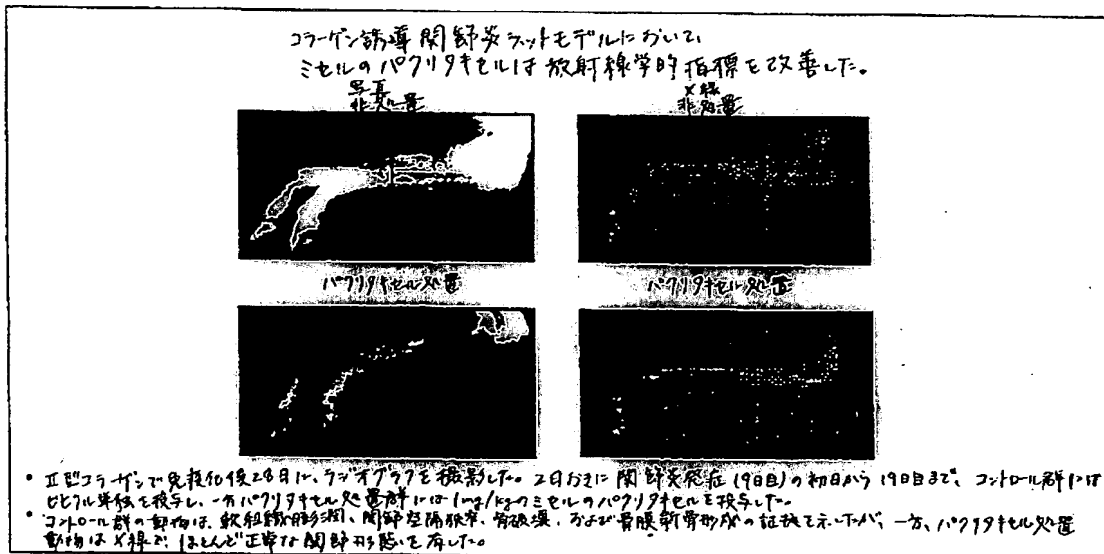 コラーゲン誘導関節炎ラットモデルにおいて、
ミセルのパクリタキセルは放射線学的指標を改善した。
写真
非処置
X線
非処置
パクリタキセル処置
パクリタキセル処置
• II型コラーゲンで免疫化後28日に、ラジオグラフを撮影した。2日おきに関節炎発症(9日目)の初日から19日目まで、コントロール群には
ビヒクル単独を投与し、一方パクリタキセル処置群には1mg/kgのミセルのパクリタキセルを投与した。
• コントロール群の動物は、軟組織膨潤、関節空隙狭窄、骨破壊、および骨膜新骨形成の証拠を示したが、一方、パクリタキセル処置
動物はX線で、ほとんど正常な関節形態を有した。